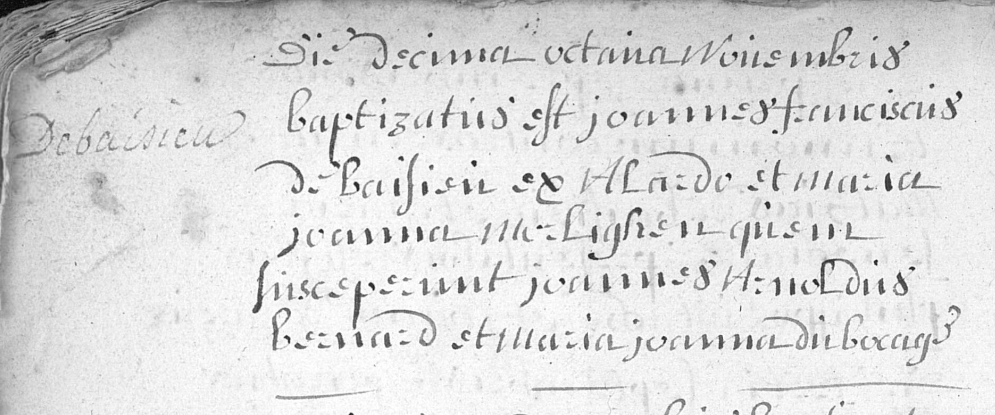 Die decima octaua Nouembris
Debaisieu
baptizatus est joannes franciscus
de baisieu ex Alardo et maria
joanna Merlighen quem
susceperunt joannes Arnoldus
bernard et maria joanna du bocage